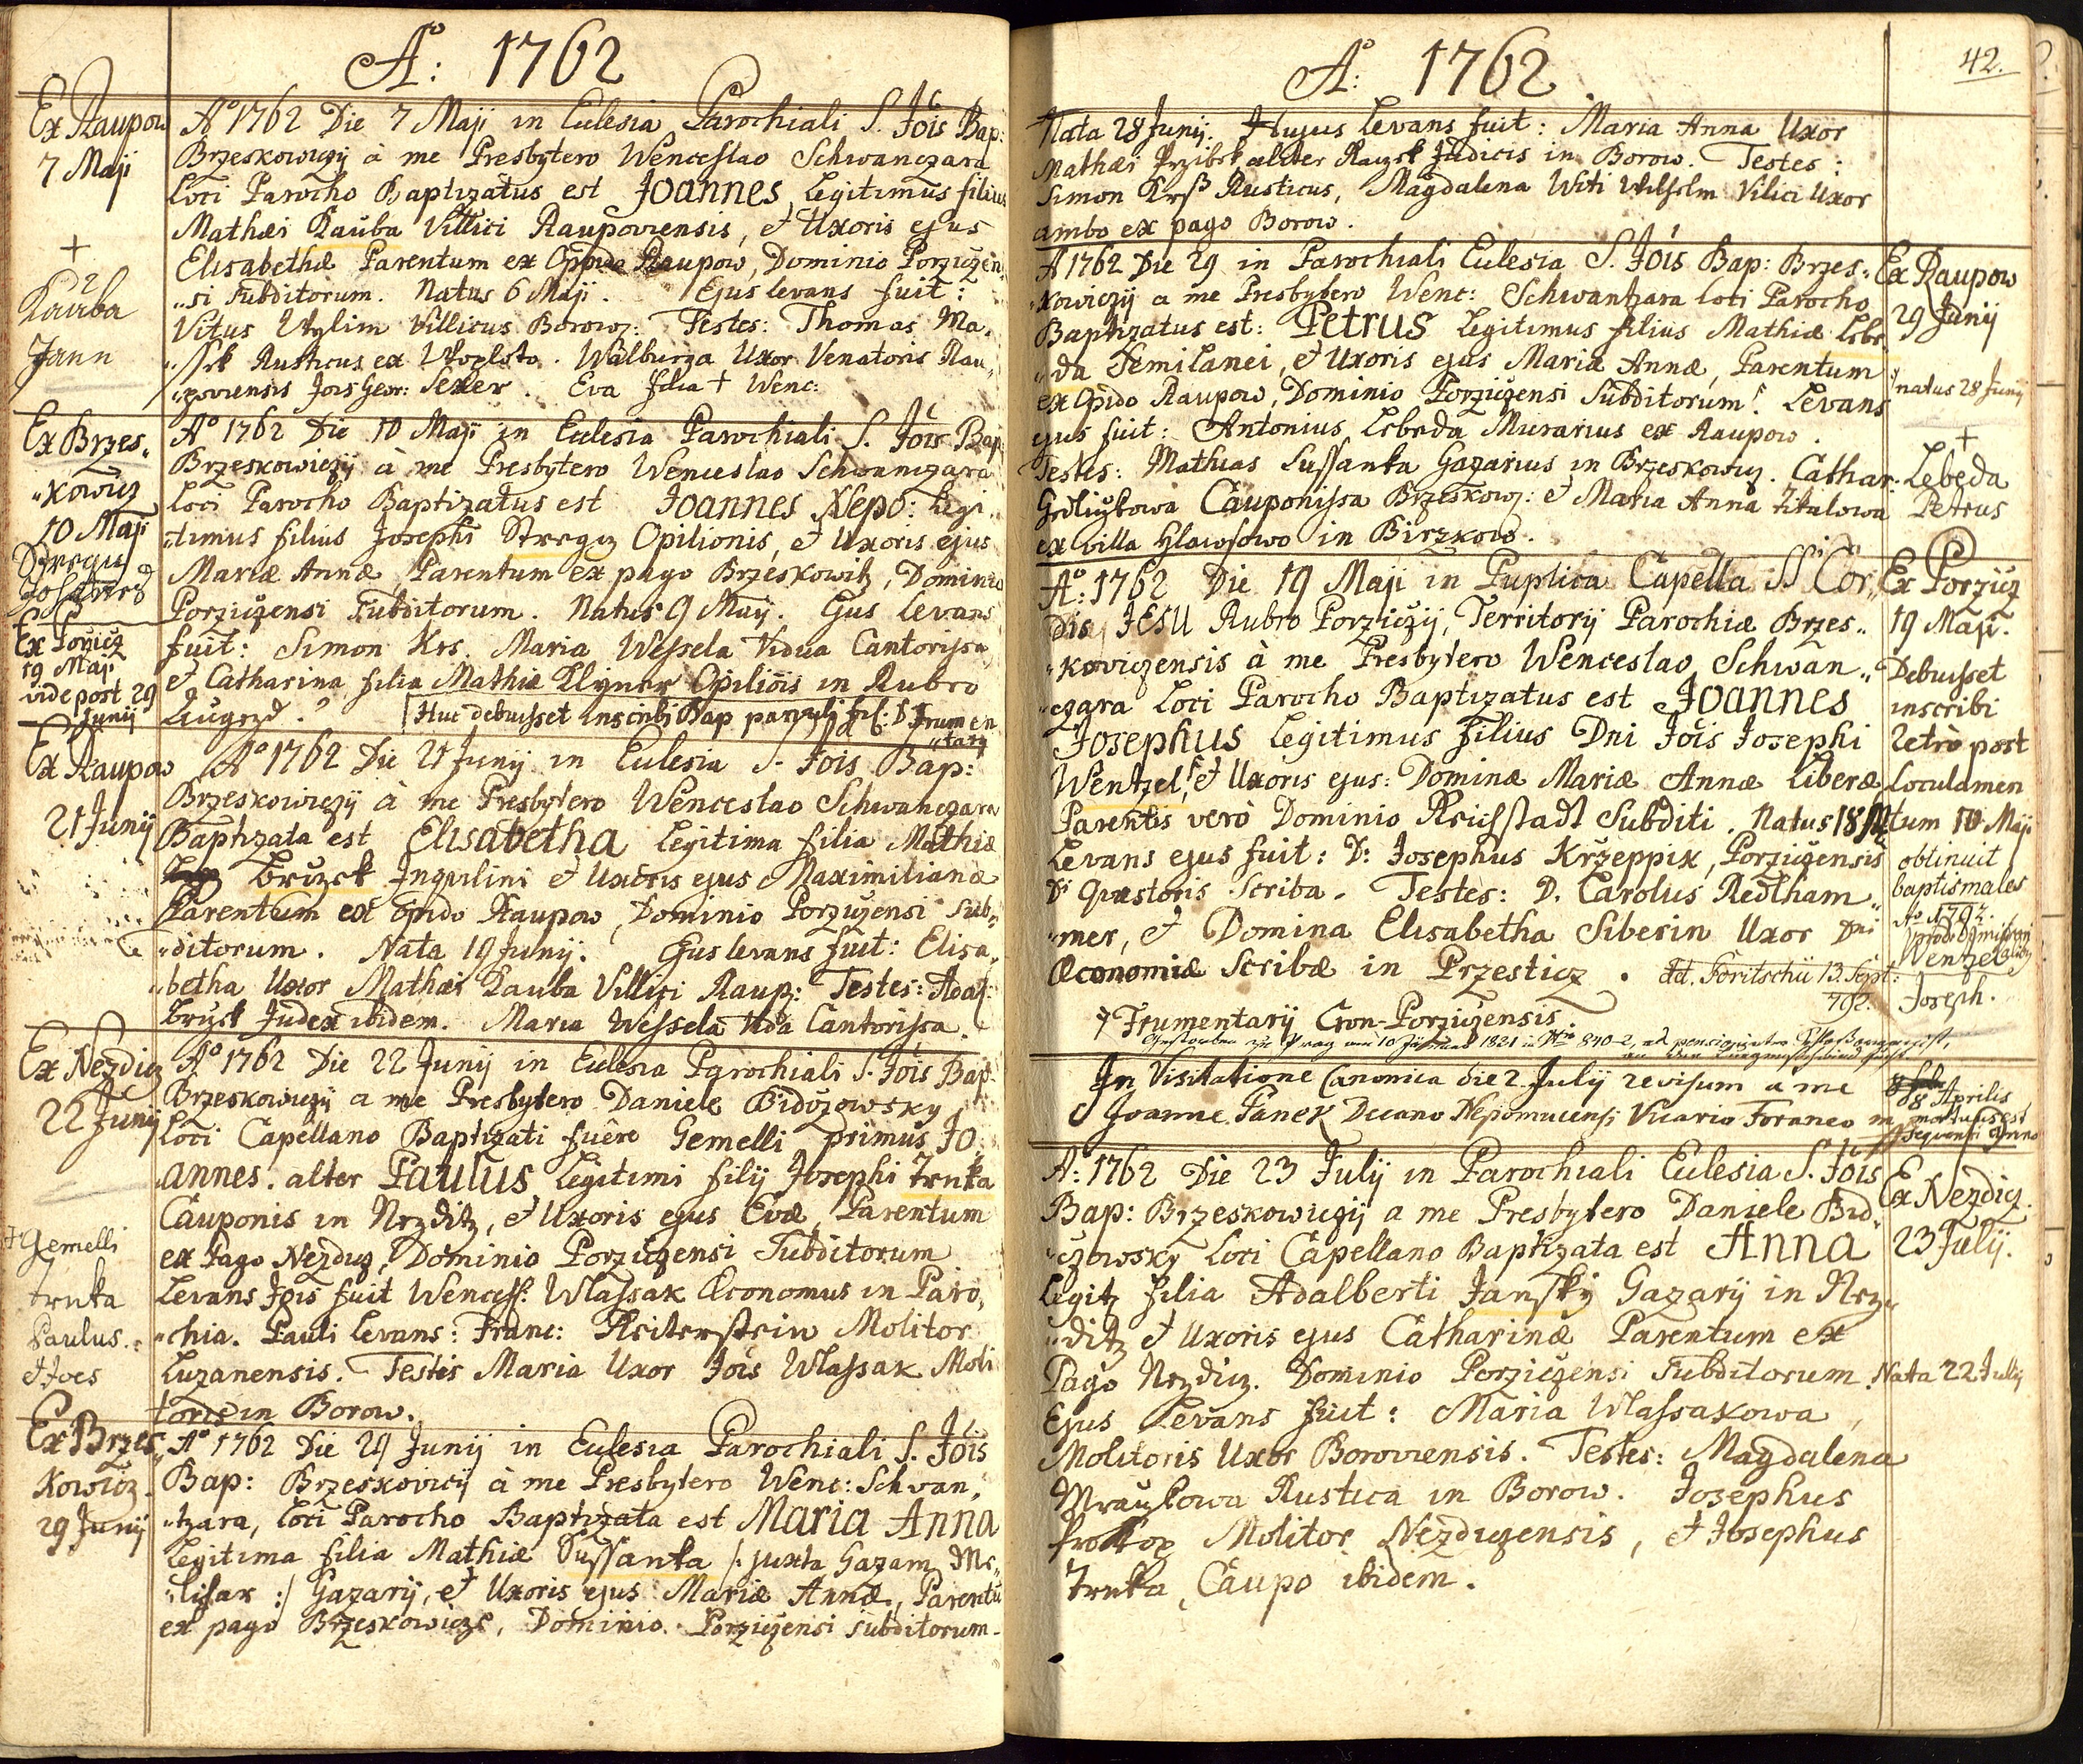 Aº: 1762
Ex Raupow
7 Maji
+
Kauba
Jann
Aº 1762 Die 7 Maji in Eclesia Parochiali S. Jois Bap:
Brzeskowiczij à me Presbytero Wenceslao Schwanczara
Loci Parocho Baptizatus est Joannes Legitimus filius
Mathæi Kauba Villici Raupoviensis, et Uxoris ejus
Elisabethæ Parentum ex Oppido Raupow, Dominio Porziczen
"si subditorum. Natus 6 Maji. Ejus levans fuit:
Vitus Wylim Villicus Borowz: Testes: Thomas Ma.
Rusticus ex Woploto. Walburga Uxor Venatoris Rau"
"poviensis Jois Geor: Sexer. Eva filia + Wenc:
Ex Brzes"
"kowicz
10 Maji
Aº 1762 Die 10 Maji in Eclesia Parochiali S. Jois Bap
Brzeskowiczij à me Presbytero Wenceslao Schwanczara
Loci Parocho Baptizatus est Joannes Nepo: Legi"
"timus filius Josephi Stregz Opilionis, et Uxoris ejus
Mariæ Annæ Parentum ex pago Brzeskowitz, Dominio
Porziczensi Subditorum. Natus 9 Maij. Ejus levans
fuit: Simon Krs. Maria Wessela Vidua Cantorissa
et Catharina filia Mathiæ Klyner Opiliois in Rubro
Augezd. Huc debuisset inscribi Bap parvuli fil: D. Frumen
"tarij
Ex Poricz
19 Maji
vide post 29
Junij
Ex Raupow
21 Junij
Aº 1762 Die 21 Junij in Eclesia S. Jois Bap:
Brzeskowiczij à me Presbytero Wenceslao Schwanczara
Baptizata est Elisabetha Legitima filia Mathiæ
Brizek Inquilini et Uxoris ejus Maximilianæ
Parentum ex opido Raupow, Dominio Porziczensi Sub"
"ditorum. Nata 19 Junij. Ejus levans fuit: Elisa"
"betha Uxor Mathæi Kauba Villici Raup: Testes: Adal:
Brizek Judex ibidem. Maria Wessela Vida Cantorissa.
Ex Nezdicz
22 Junij
+ Gemelli
Trnka
Paulus
et Joes
Aº 1762 Die 22 Junij in Eclesia Parochiali S. Jois Bap
Brzeskowiczij a me Presbytero Daniele Bidczowsky
Loci Capellano Baptizati fuêre Gemelli primus Jo"
"annes. alter Paulus Legitimi filij Josephi Trnka
Cauponis in Nezditz, et Uxoris ejus Evæ, Parentum
ex Pago Nezdicz, Dominio Porziczensi Subditorum
Levans Jois fuit Wencesl: Wlassak Œconomus in Paro"
"chia. Pauli levans: Franc: Reiterstein Molitor
Luzanensis. Testis Maria Uxor Jois Wlassak Moli
toris in Borow.
Ex Brzes"
kowicz.
29 Junij
Aº 1762 Die 29 Junij in Eclesia Parochiali S. Jois
Bap: Brzeskovicij à me Presbytero Wenc: Schvan"
"tzara, Loci Parocho Baptizata est Maria Anna
Legitima filia Mathiæ Sussanka /: juxta Gazam Me"
"lisar :/ Gazarij, et Uxoris ejus Mariæ Annæ, Parentu
ex pago Brzeskowicze, Dominio Porziczensi subditorum.
Aº: 1762.
42.
Nata 28 Junij. Hujus levans fuit: Maria Anna Uxor
Mathæi Przibek aliter Raczek Judicis in Borow. Testes:
Simon Krß Rusticus, Magdalena Witi Wilhelm Vilici Uxor
ambo ex pago Borow.
A 1762 Die 29 in Parochiali Eclesia S. Jois Bap: Brzes"
"kowiczij a me Presbytero Wenc: Schwantzara Loci Parocho
Baptizatus est: Petrus Legitimus filius Mathiæ Lebe"
"da Semilanei, et Uxoris ejus Mariæ Annæ, Parentum
ex Opido Raupow, Dominio Porziczensi Subditorum. Levans
ejus fuit: Antonius Lebeda Murarius ex Raupow.
Testes: Mathias Sussanka Gazarius in Brzeskowicz. Cathar:
Cauponissa Brzeskow: et Maria Anna
ex villa Hlawsowo in Birzkow.
Ex Raupow
29 Junij
natus 28 Junij
+
Lebeda
Petrus
Aº: 1762 Die 19 Maji in Puplica Capella SS Cor"
dis JESU Rubro Porziczij, Territorij Parochiæ Brzes"
"koviczensis à me Presbytero Wenceslao Schwan"
"czara Loci Parocho Baptizatus est Joannes
Josephus Legitimus filius Dni Jois Josephi
Wentzel, et Uxoris ejus: Dominæ Mariæ Annæ Liberæ
Parentis verò Dominio Reichstadt Subditi. Natus 18 M
Levans ejus fuit: D: Josephus Krzeppix, Porziczensis
Di Quæstoris Scriba. Testes: D. Carolus Redlham"
"mer, et Domina Elisabetha Siberin Uxor Dni
Œconomiæ Scribæ in Przesticz.
Frumentarij Cron-Porziczensis.
Ex Porzicz
19 Maji.
Debuisset
inscribi
retrò post
Loculamen
tum 10 Maji
obtinuit
baptismales
Aº 1792.
Wenzel
Joseph.
In Visitatione Canonica die 2 Julij revisum a me
Joanne Fanek Decano Nepomucensi Vicario Foraneo
8 Aprilis
mortuus est
sequenti anno
A: 1762 Die 23 Julij in Parochiali Eclesia S. Jois
Bap: Brzeskowiczij a me Presbytero Daniele Bid"
"czowsky Loci Capellano Baptizata est Anna
Legit filia Adalberti Jansky Gazarij in Nez"
"ditz et Uxoris ejus Catharinæ Parentum ex
Pago Nezdicz. Dominio Porziczensi Subditorum.
Ejus Levans fuit: Maria Wlassakowa
Molitoris Uxor Boroviensis. Testes: Magdalena
Mrazkowa Rustica in Borow. Josephus
Prokop Molitor Nezdiczensis, et Josephus
Trnka, Caupo ibidem.
Ex Nezdicz.
23 Julij.
Nata 22 Julij